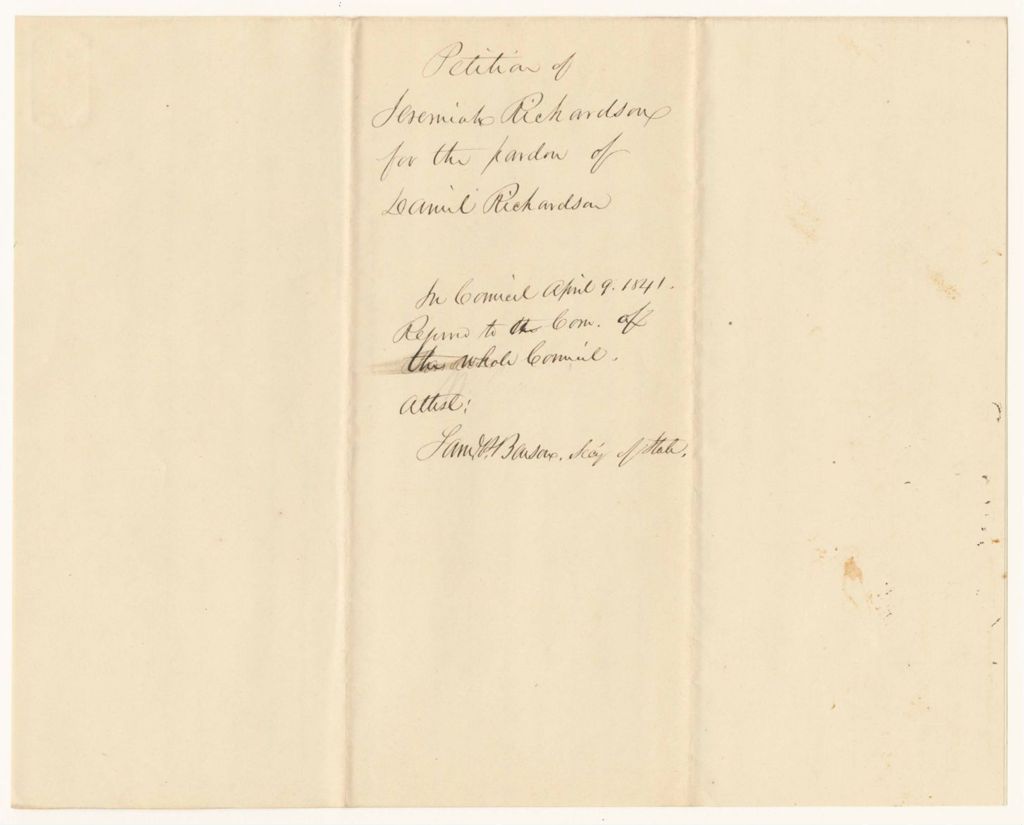 Petition of
Jeremiah Richardson
for the pardon of
Daniel Richardson
In Council April 9. 1841.
Referred to the Com. of
the whole Council.
Attest:
Saml P. Benson. Secy of State.